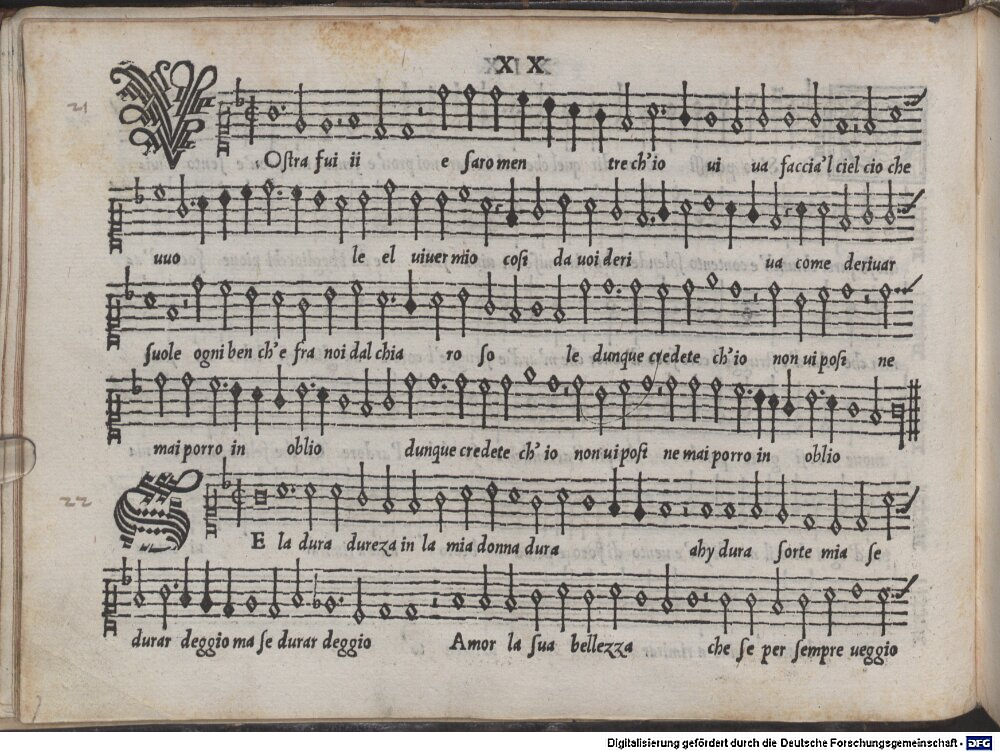 XX
21
VOſtra fui ii e ſaro men tre ch'io ui ua faccia'l ciel cio che
uuo le el uiuer mio coſi da uoi deri ua come deriuar
ſuole ogni ben ch'e fra noi dal chia ro ſo le dunque credete ch'io non ui poſi ne
mai porro in oblio dunque credete ch'io non ui poſi ne mai porro in oblio
22
SE la dura dureza in la mia donna dura ahy dura ſorte mia ſe
durar deggio ma ſe durar deggio Amor la ſua bellezza che ſe per ſempre ueggio
Digitalisierung gefördert durch die Deutsche Forschungsgemeinschaft - DFG